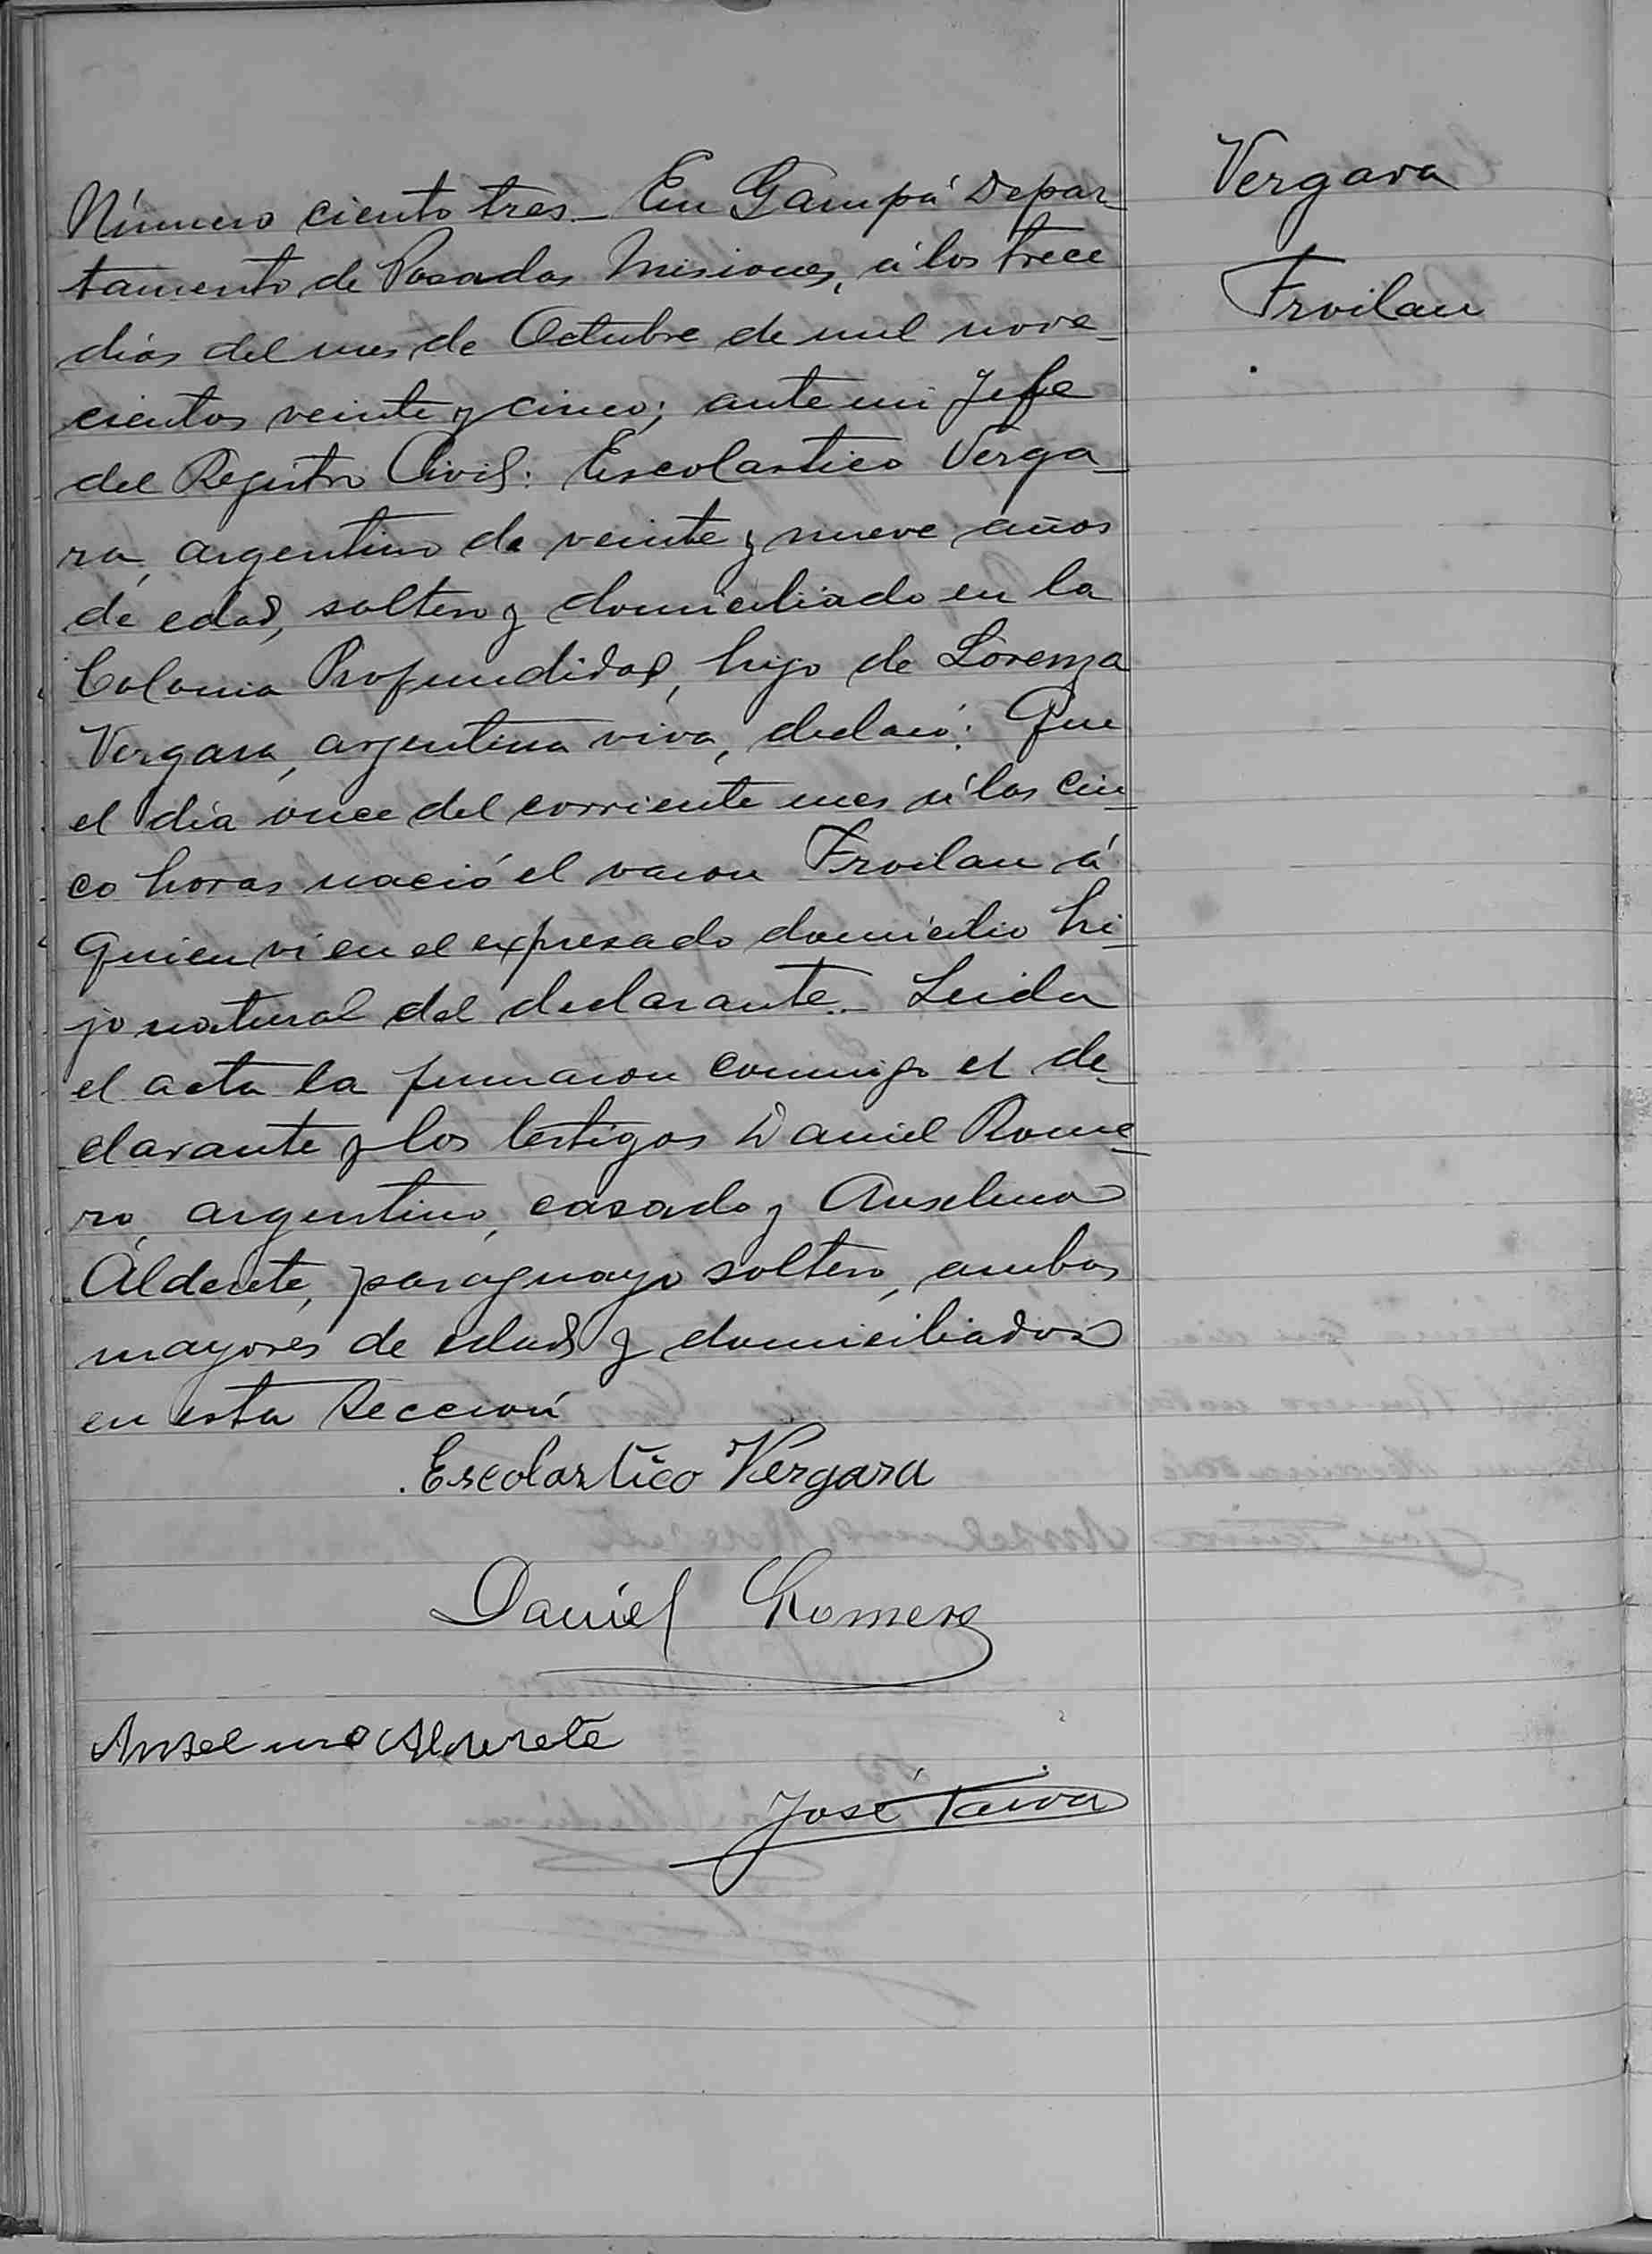 Vergara
Froilan
Número ciento tres_ En Garupá Depar_
tamento de Posadas Misiones, á los trece
dias del mes de Octubre de mil nove_
cientos veinte y cinco; ante mi Jefe
del Registro Civil: Escolastico Verga_
ra, argentino de veinte y nueve años
de edad, soltero y domiciliado en la
Colonia Profundidad, hijo de Lorenza
Vergara, argentina viva, declaró: Que
el dia once del corriente mes á las cin_
co horas nació el varon Froilan á
quien vi en el expresado domicilio hi_
jo natural del declarante._ Leida
el acta la firmaron conmigo el de_
clarante y los testigos Daniel Rome_
ro, argentino, casado y Anselmo
Alderete, paraguayo soltero, ambos
mayores de edad y domiciliados
en esta Sección
Escolastico Vergara
Daniel Romero
Anselmo Alderete
José